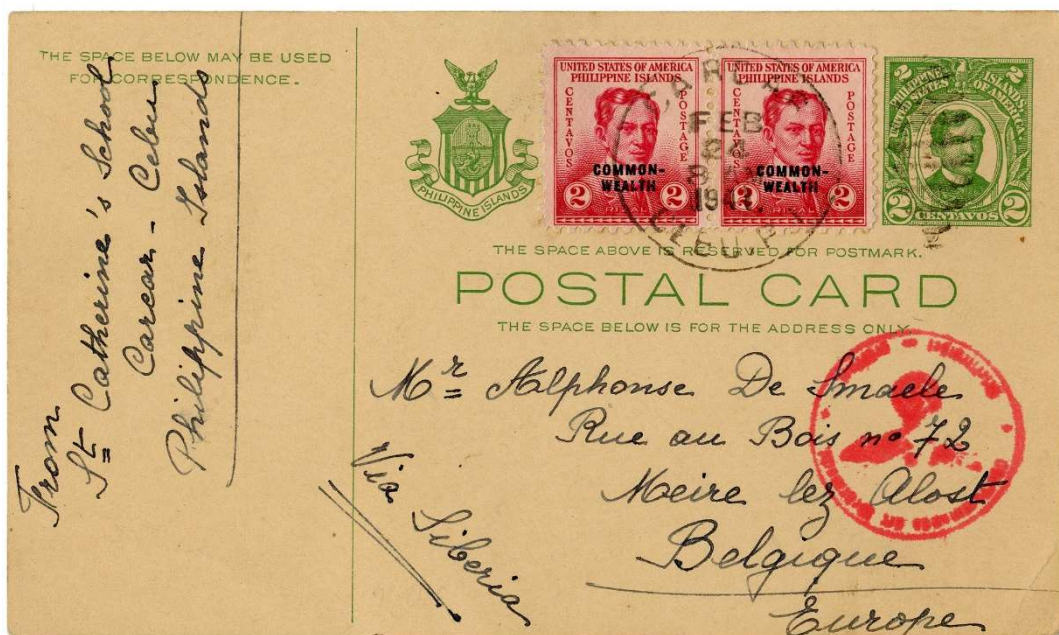 THE SPACE BELOW MAY BE USED
FOR CORRESPONDENCE.
From
St Catherine's School
Carcar - Cebu
Philippine Islands
PHILIPPINE ISLANDS
UNITED STATES OF AMERICA
PHILIPPINE ISLANDS
CENTAVOS
POSTAGE
COMMON-
WEALTH
2 RIZAL 2
UNITED STATES OF AMERICA
PHILIPPINE ISLANDS
CENTAVOS
POSTAGE
COMMON-
WEALTH
2 RIZAL 2
CARCAR
FEB
24
8 AM
CEBU, P.I.
2 2
PHILIPPINE ISLANDS
UNITED STATES OF AMERICA
2 CENTAVOS 2
THE SPACE ABOVE IS RESERVED FOR POSTMARK.
POSTAL CARD
THE SPACE BELOW IS FOR THE ADDRESS ONLY.
Mr Alphonse De Smaele
Rue au Bois no 72
Meire lez Alost
Belgique
Europe
Via Siberia